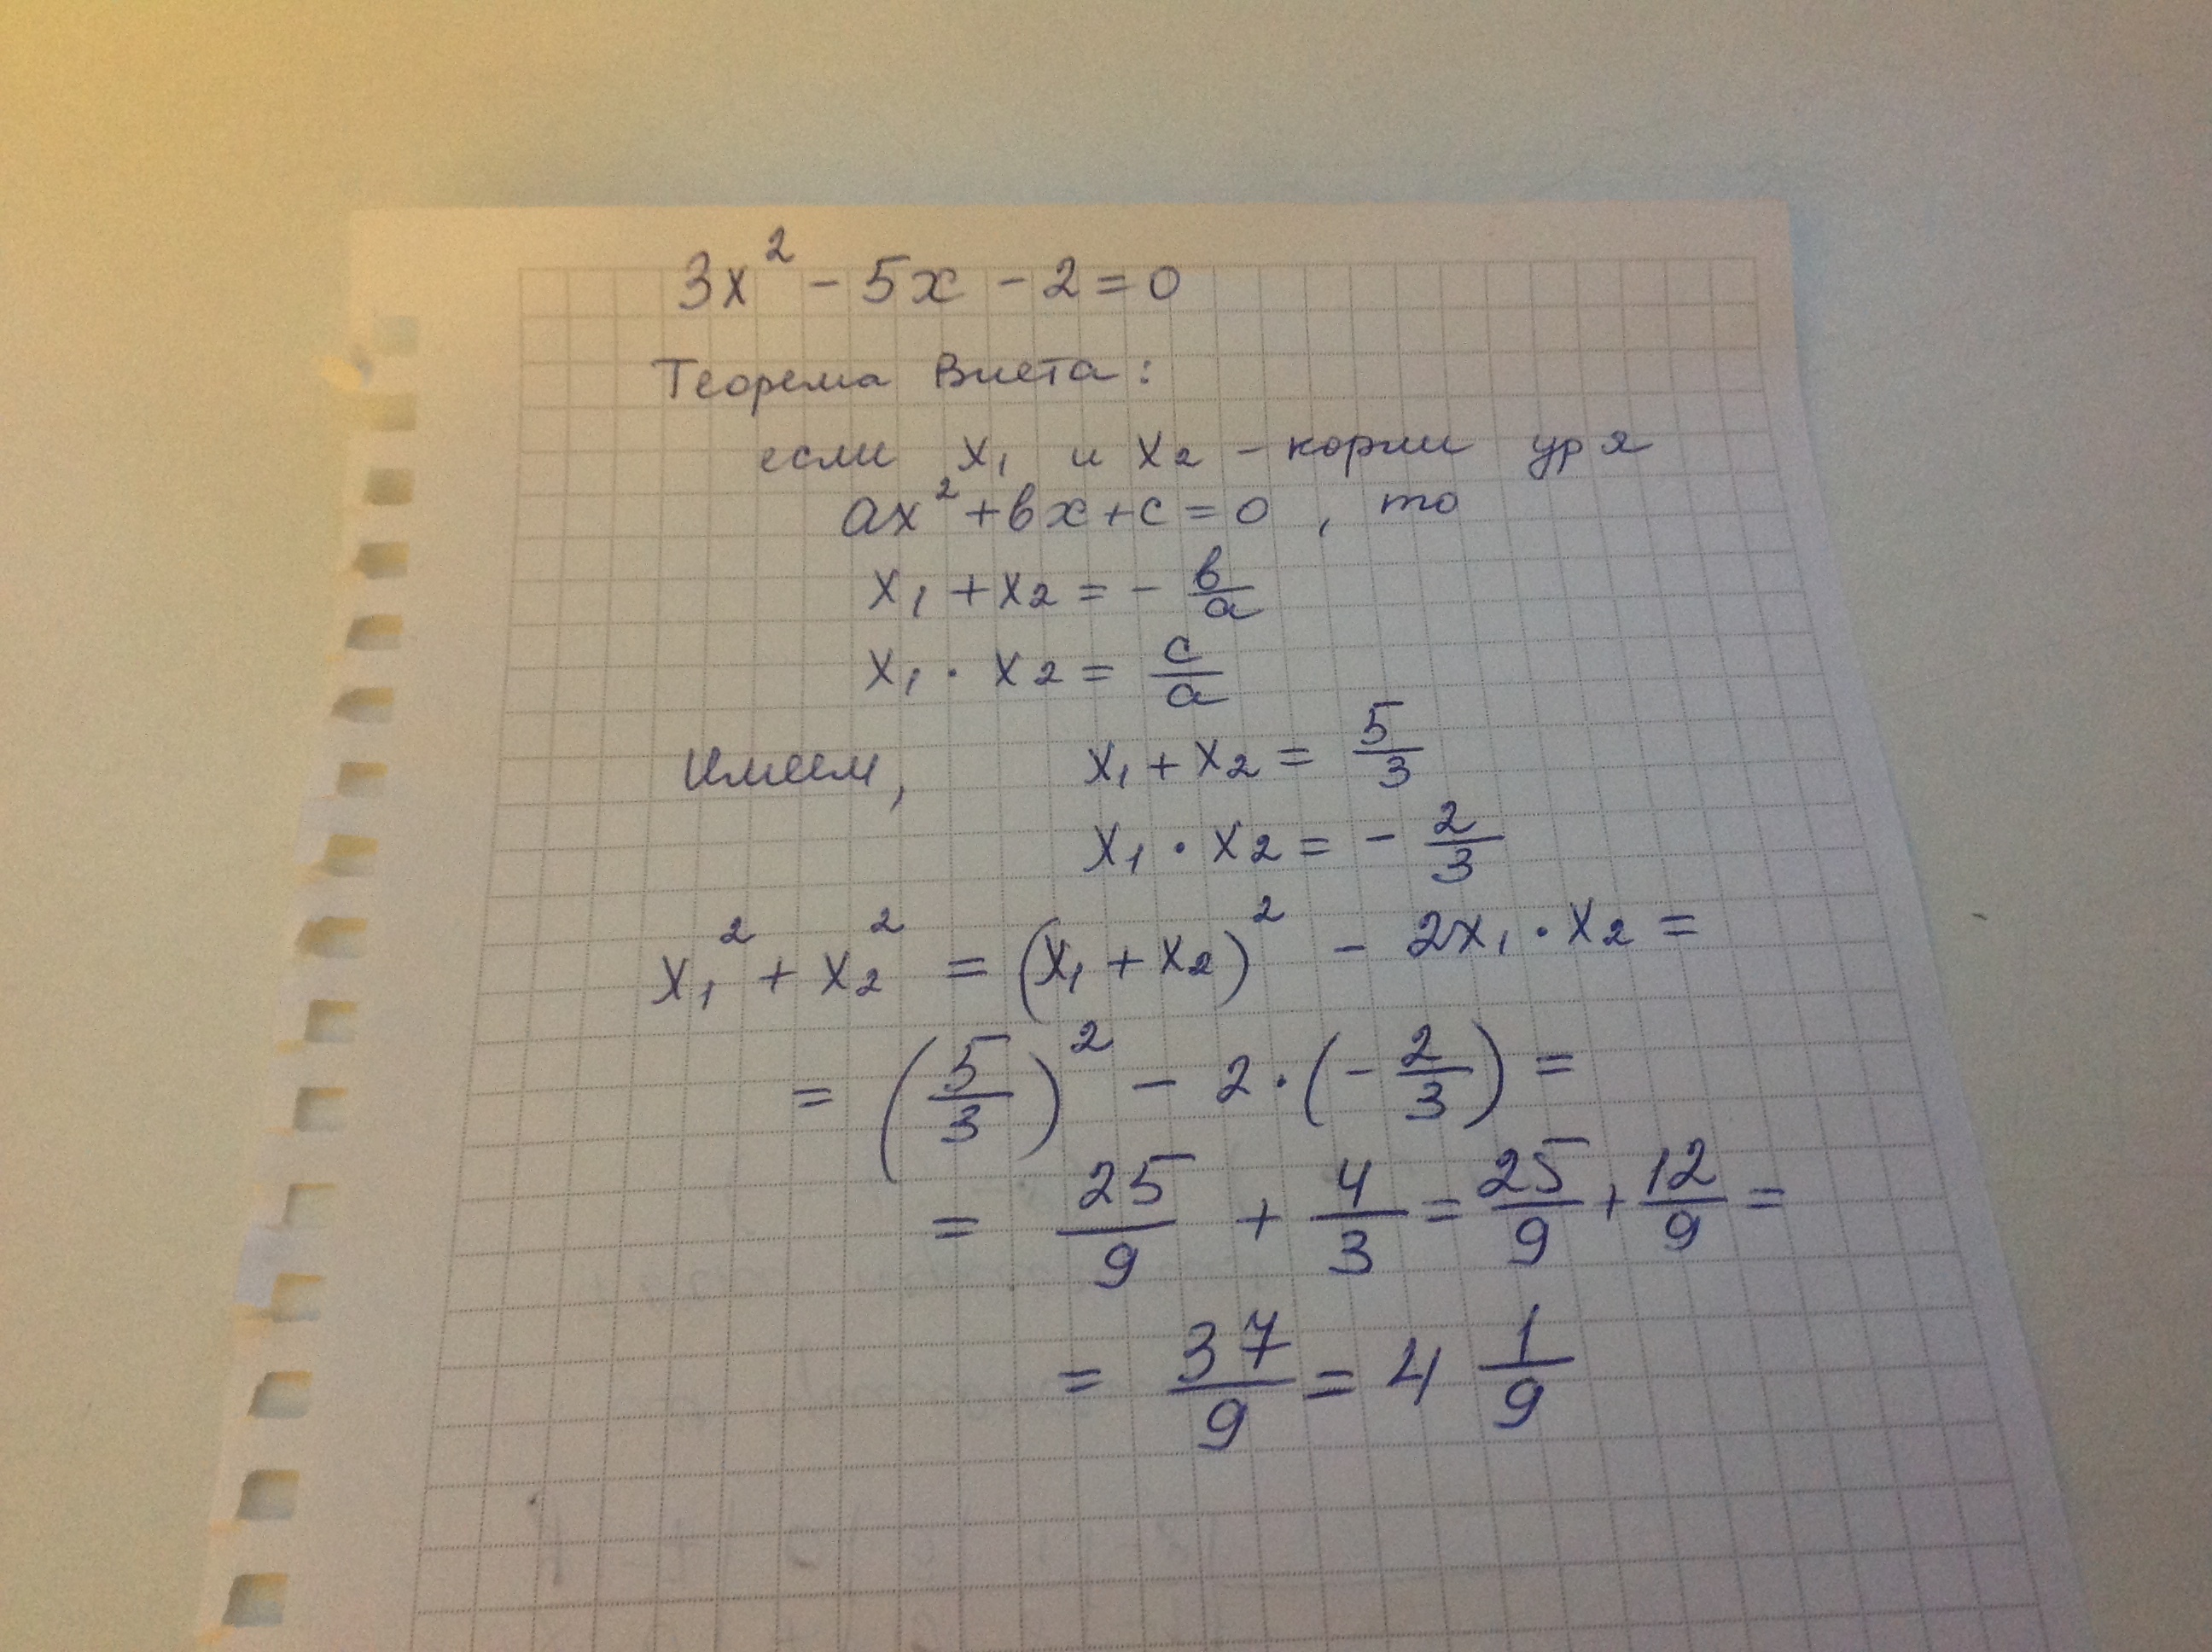 3x² - 5x - 2 = 0
Теорема Виета:
если x₁ и x₂ - корни ур я
ax² + bx + c = 0, то
x₁ + x₂ = - b/a
x₁ · x₂ = c/a
Имеем, x₁ + x₂ = 5/3
x₁ · x₂ = - 2/3
x₁² + x₂² = (x₁ + x₂)² - 2x₁ · x₂ =
= (5/3)² - 2 · (- 2/3) =
= 25/9 + 4/3 = 25/9 + 12/9 =
= 37/9 = 4 1/9